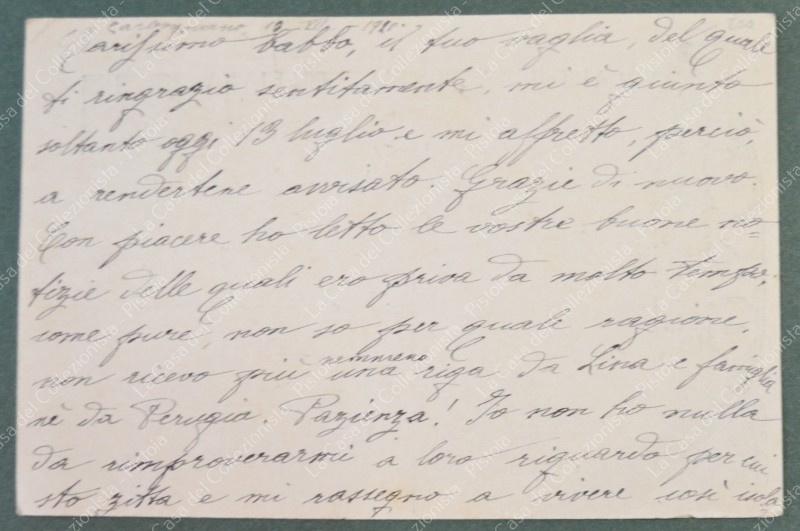 13 1921
Carissimo babbo, il tuo vaglia, del quale
ti ringrazio sentitamente, mi è giunto
soltanto oggi 13 luglio e mi affretto, perciò,
a rendertene avvisato. Grazie di nuovo.
Con piacere ho letto le vostre buone no=
tizie delle quali ero priva da molto tempo;
come pure, non so per quale ragione,
non ricevo più nemmeno una riga da Lina e famiglia
nè da Perugia. Pazienza! Io non ho nulla
da rimproverarmi a loro riguardo per cui
sto zitta e mi rassegno a vivere così isola
La Casa del Collezionista - Pistoia